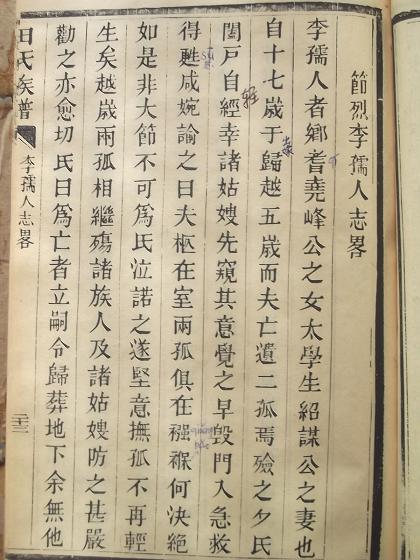 節烈李孺人志畧
李孺人者鄉耆堯峰公之女太學生紹謀公之妻也
自十七歲于歸越五歲而夫亡遺二孤焉殮之夕氏
闔戶自經幸諸姑嫂先窺其意覺之早毀門入急救
得甦咸婉諭之曰夫柩在室兩孤俱在襁褓何決絕
如是非大節不可為氏泣諾之遂堅意撫孤不再輕
生矣越歲兩孤相繼殤諸族人及諸姑嫂防之甚嚴
勸之亦愈切氏曰為亡者立嗣令歸葬地下余無他
田氏族譜
李孺人志畧
二十三